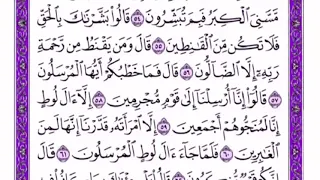 مَّسَّنِيَ ٱلْكِبَرُ فَبِمَ تُبَشِّرُونَ ٥٤ قَالُوا۟ بَشَّرْنَٰكَ بِٱلْحَقِّ
فَلَا تَكُن مِّنَ ٱلْقَٰنِطِينَ ٥٥ قَالَ وَمَن يَقْنَطُ مِن رَّحْمَةِ
رَبِّهِۦٓ إِلَّا ٱلضَّآلُّونَ ٥٦ قَالَ فَمَا خَطْبُكُمْ أَيُّهَا ٱلْمُرْسَلُونَ
٥٧ قَالُوٓا۟ إِنَّآ أُرْسِلْنَآ إِلَىٰ قَوْمٍ مُّجْرِمِينَ ٥٨ إِلَّآ ءَالَ لُوطٍ
إِنَّا لَمُنَجُّوهُمْ أَجْمَعِينَ ٥٩ إِلَّا ٱمْرَأَتَهُۥ قَدَّرْنَآ إِنَّهَا لَمِنَ
ٱلْغَٰبِرِينَ ٦٠ فَلَمَّا جَآءَ ءَالَ لُوطٍ ٱلْمُرْسَلُونَ ٦١ قَالَ